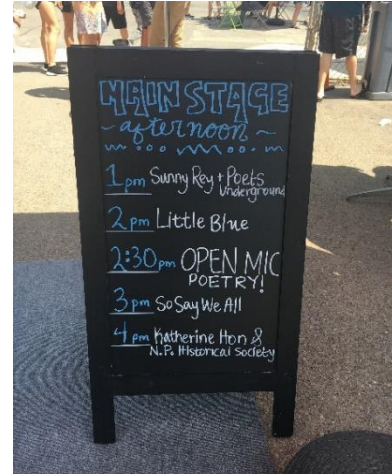 MAIN STAGE
~ afternoon ~
1pm Sunny Rey + Poets
Underground
2pm Little Blue
2:30pm OPEN MIC
POETRY!
3pm So Say We All
4pm Katherine Hon &
N.P. Historical Society